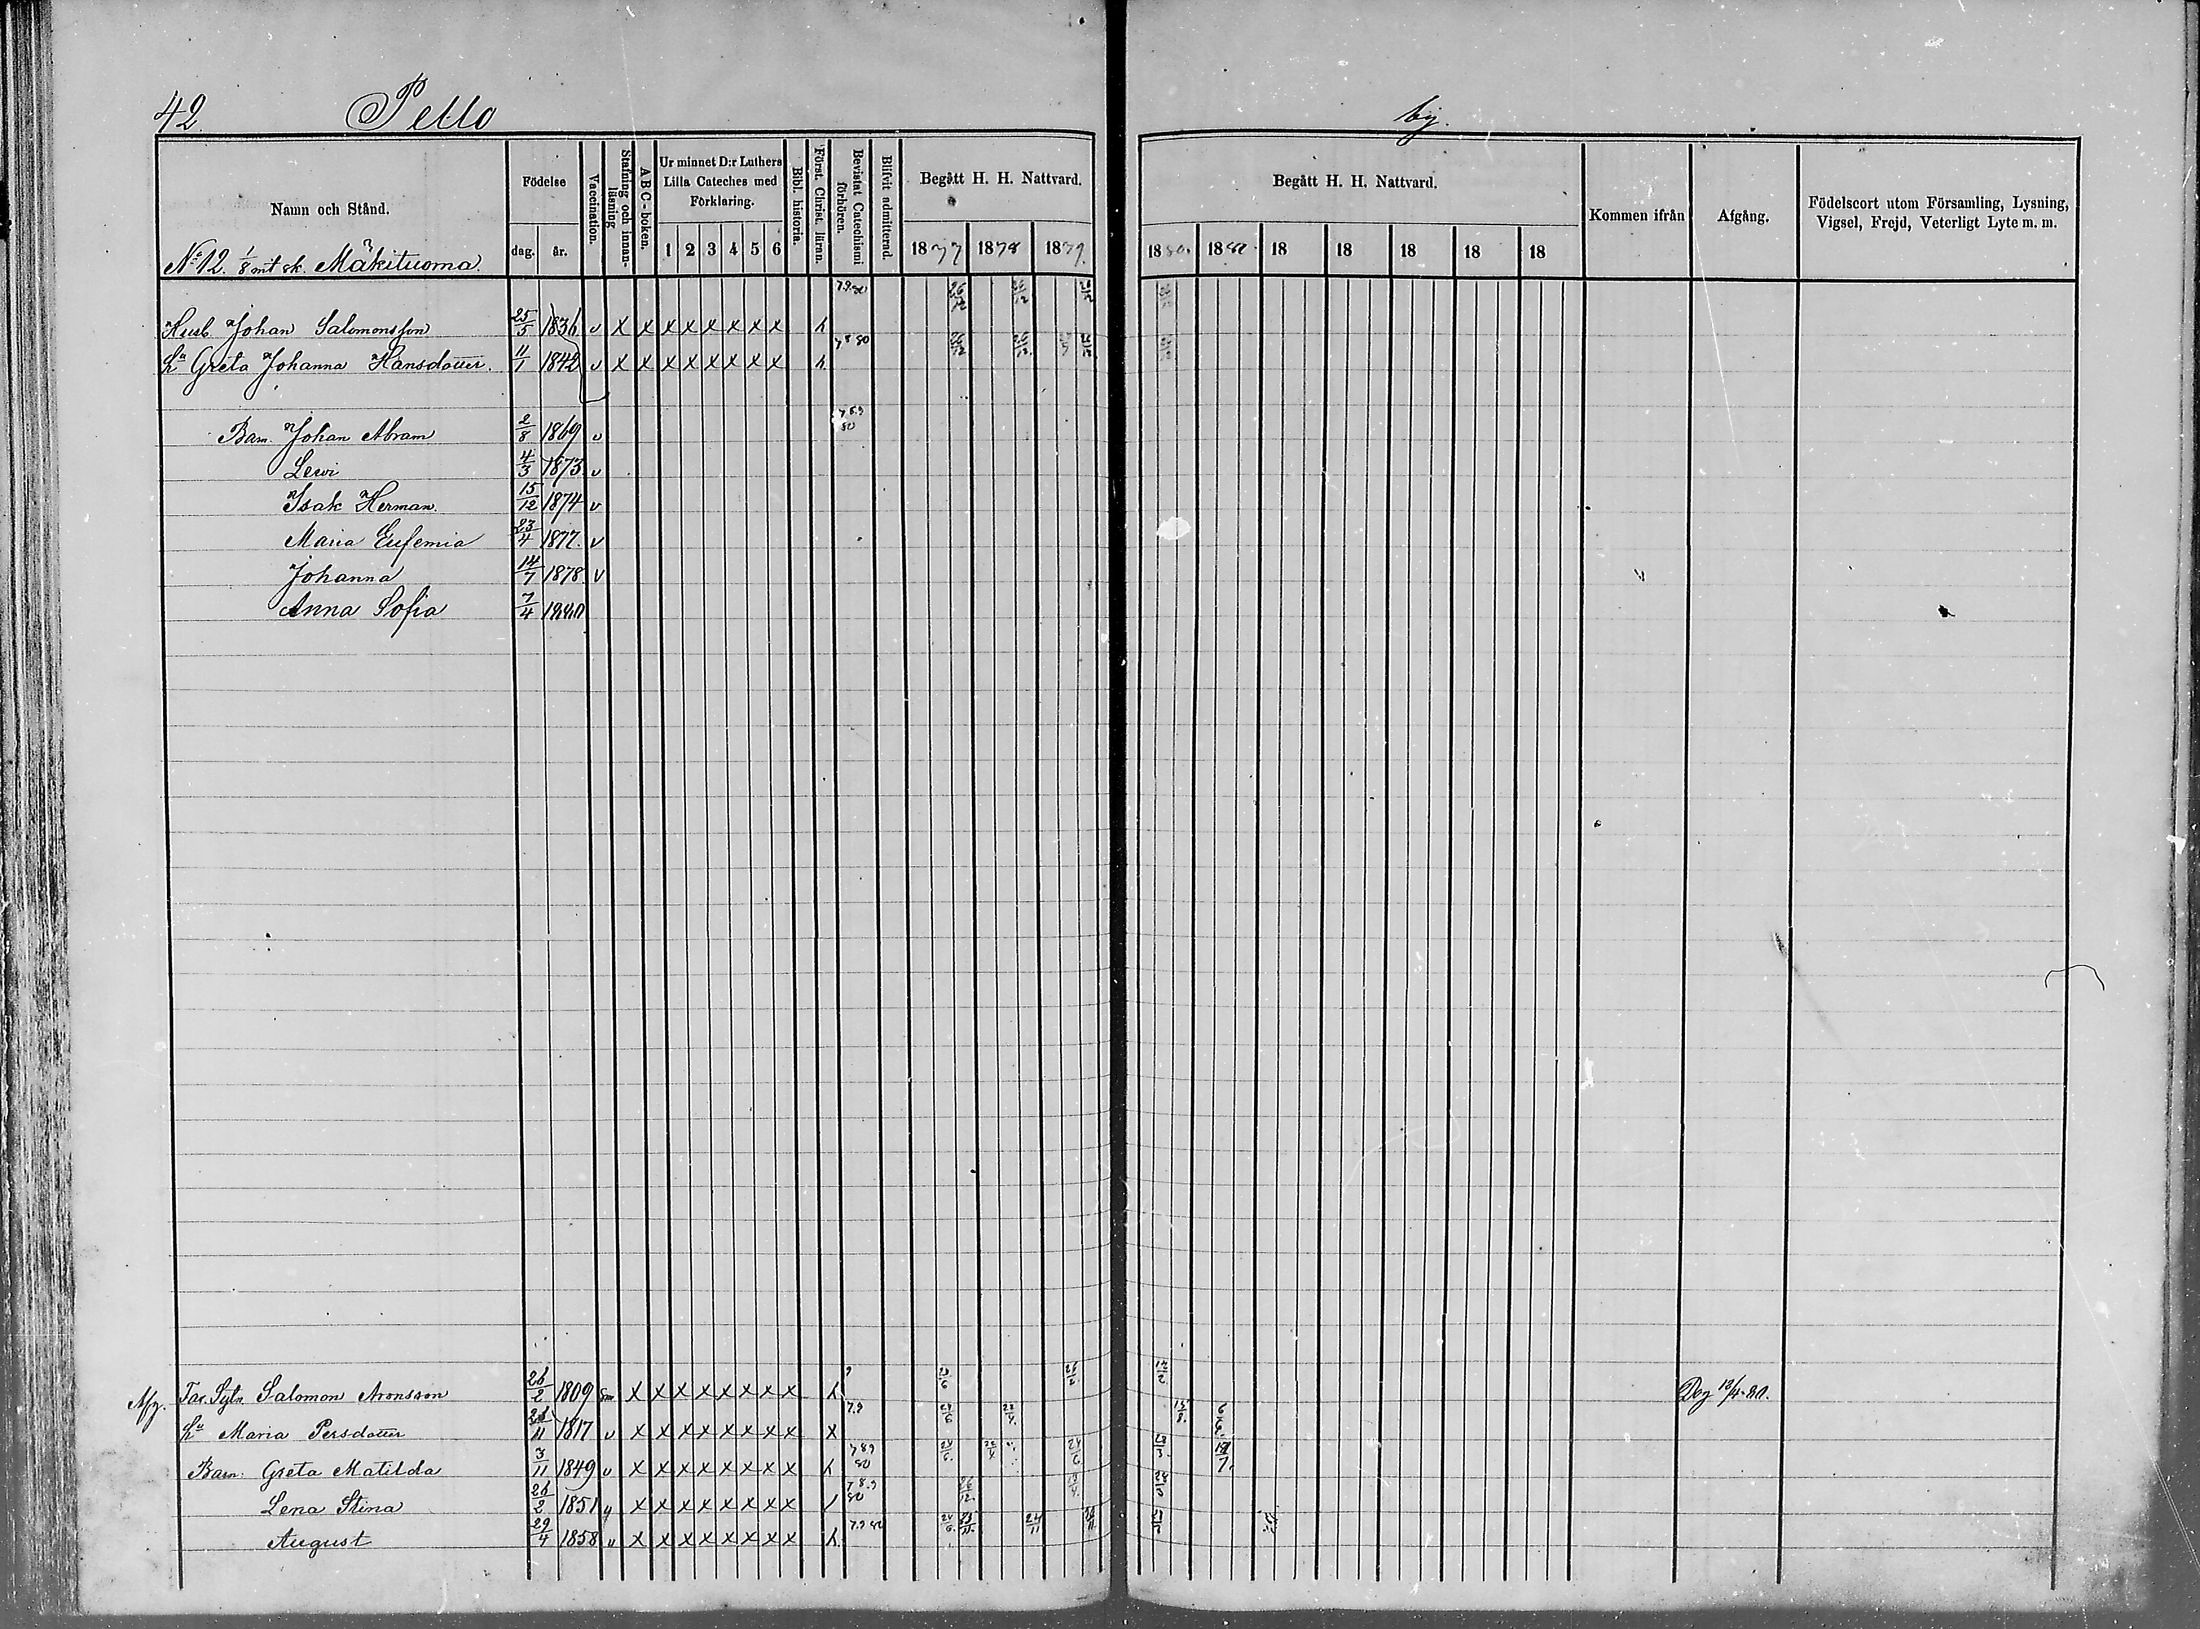 42. Pello by.
Namn och Stånd.
Födelse
dag. år.
Vaccination.
Stafning och innanläsning
A B C - boken.
Ur minnet D:r Luthers Lilla Cateches med Förklaring.
1 2 3 4 5 6
Bibl. historia.
Först. Christ. läran.
Bevistat Catechismi förhören.
Blifvit admitterad.
Begått H. H. Nattvard.
1877 1878 1879.
Begått H. H. Nattvard.
1880. 188 18 18 18 18 18
Kommen ifrån
Afgång.
Födelseort utom Församling, Lysning, Vigsel, Frejd, Veterligt Lyte m. m.
No 12. 1/8 mt sk. Mäkituoma.
Husb. Johan Salomonsson 25/5 1836 v x x x x x x x x h 7.9.80 26/12 26/12 26/12 26/12
Hu Greta Johanna Hansdotter. 11/1 1842 v x x x x x x x x h 7 8 80 26/12 26/12 26/12
Barn. Johan Abram 2/8 1869 v 7 8.9 80
Lewi 4/3 1873 v
Isak Herman. 15/12 1874 v
Maria Eufemia 23/4 1877. v
Johanna 14/7 1878 v
Anna Sofia 7/4 1880
Far. Sytn. Salomon Aronsson 26/2 1809 x x x x x x x x h
Hu Maria Persdotter 1817 v x x x x x x x x x 7.9 24/6
Barn: Greta Matilda 3/11 1849 v x x x x x x x x h 7 8 9 80 24/6
Lena Stina 26/2 1851 x x x x x x x x 7 8.9 80 26/12
August 29/4 1858 v x x x x x x x x h 24/6 24/11